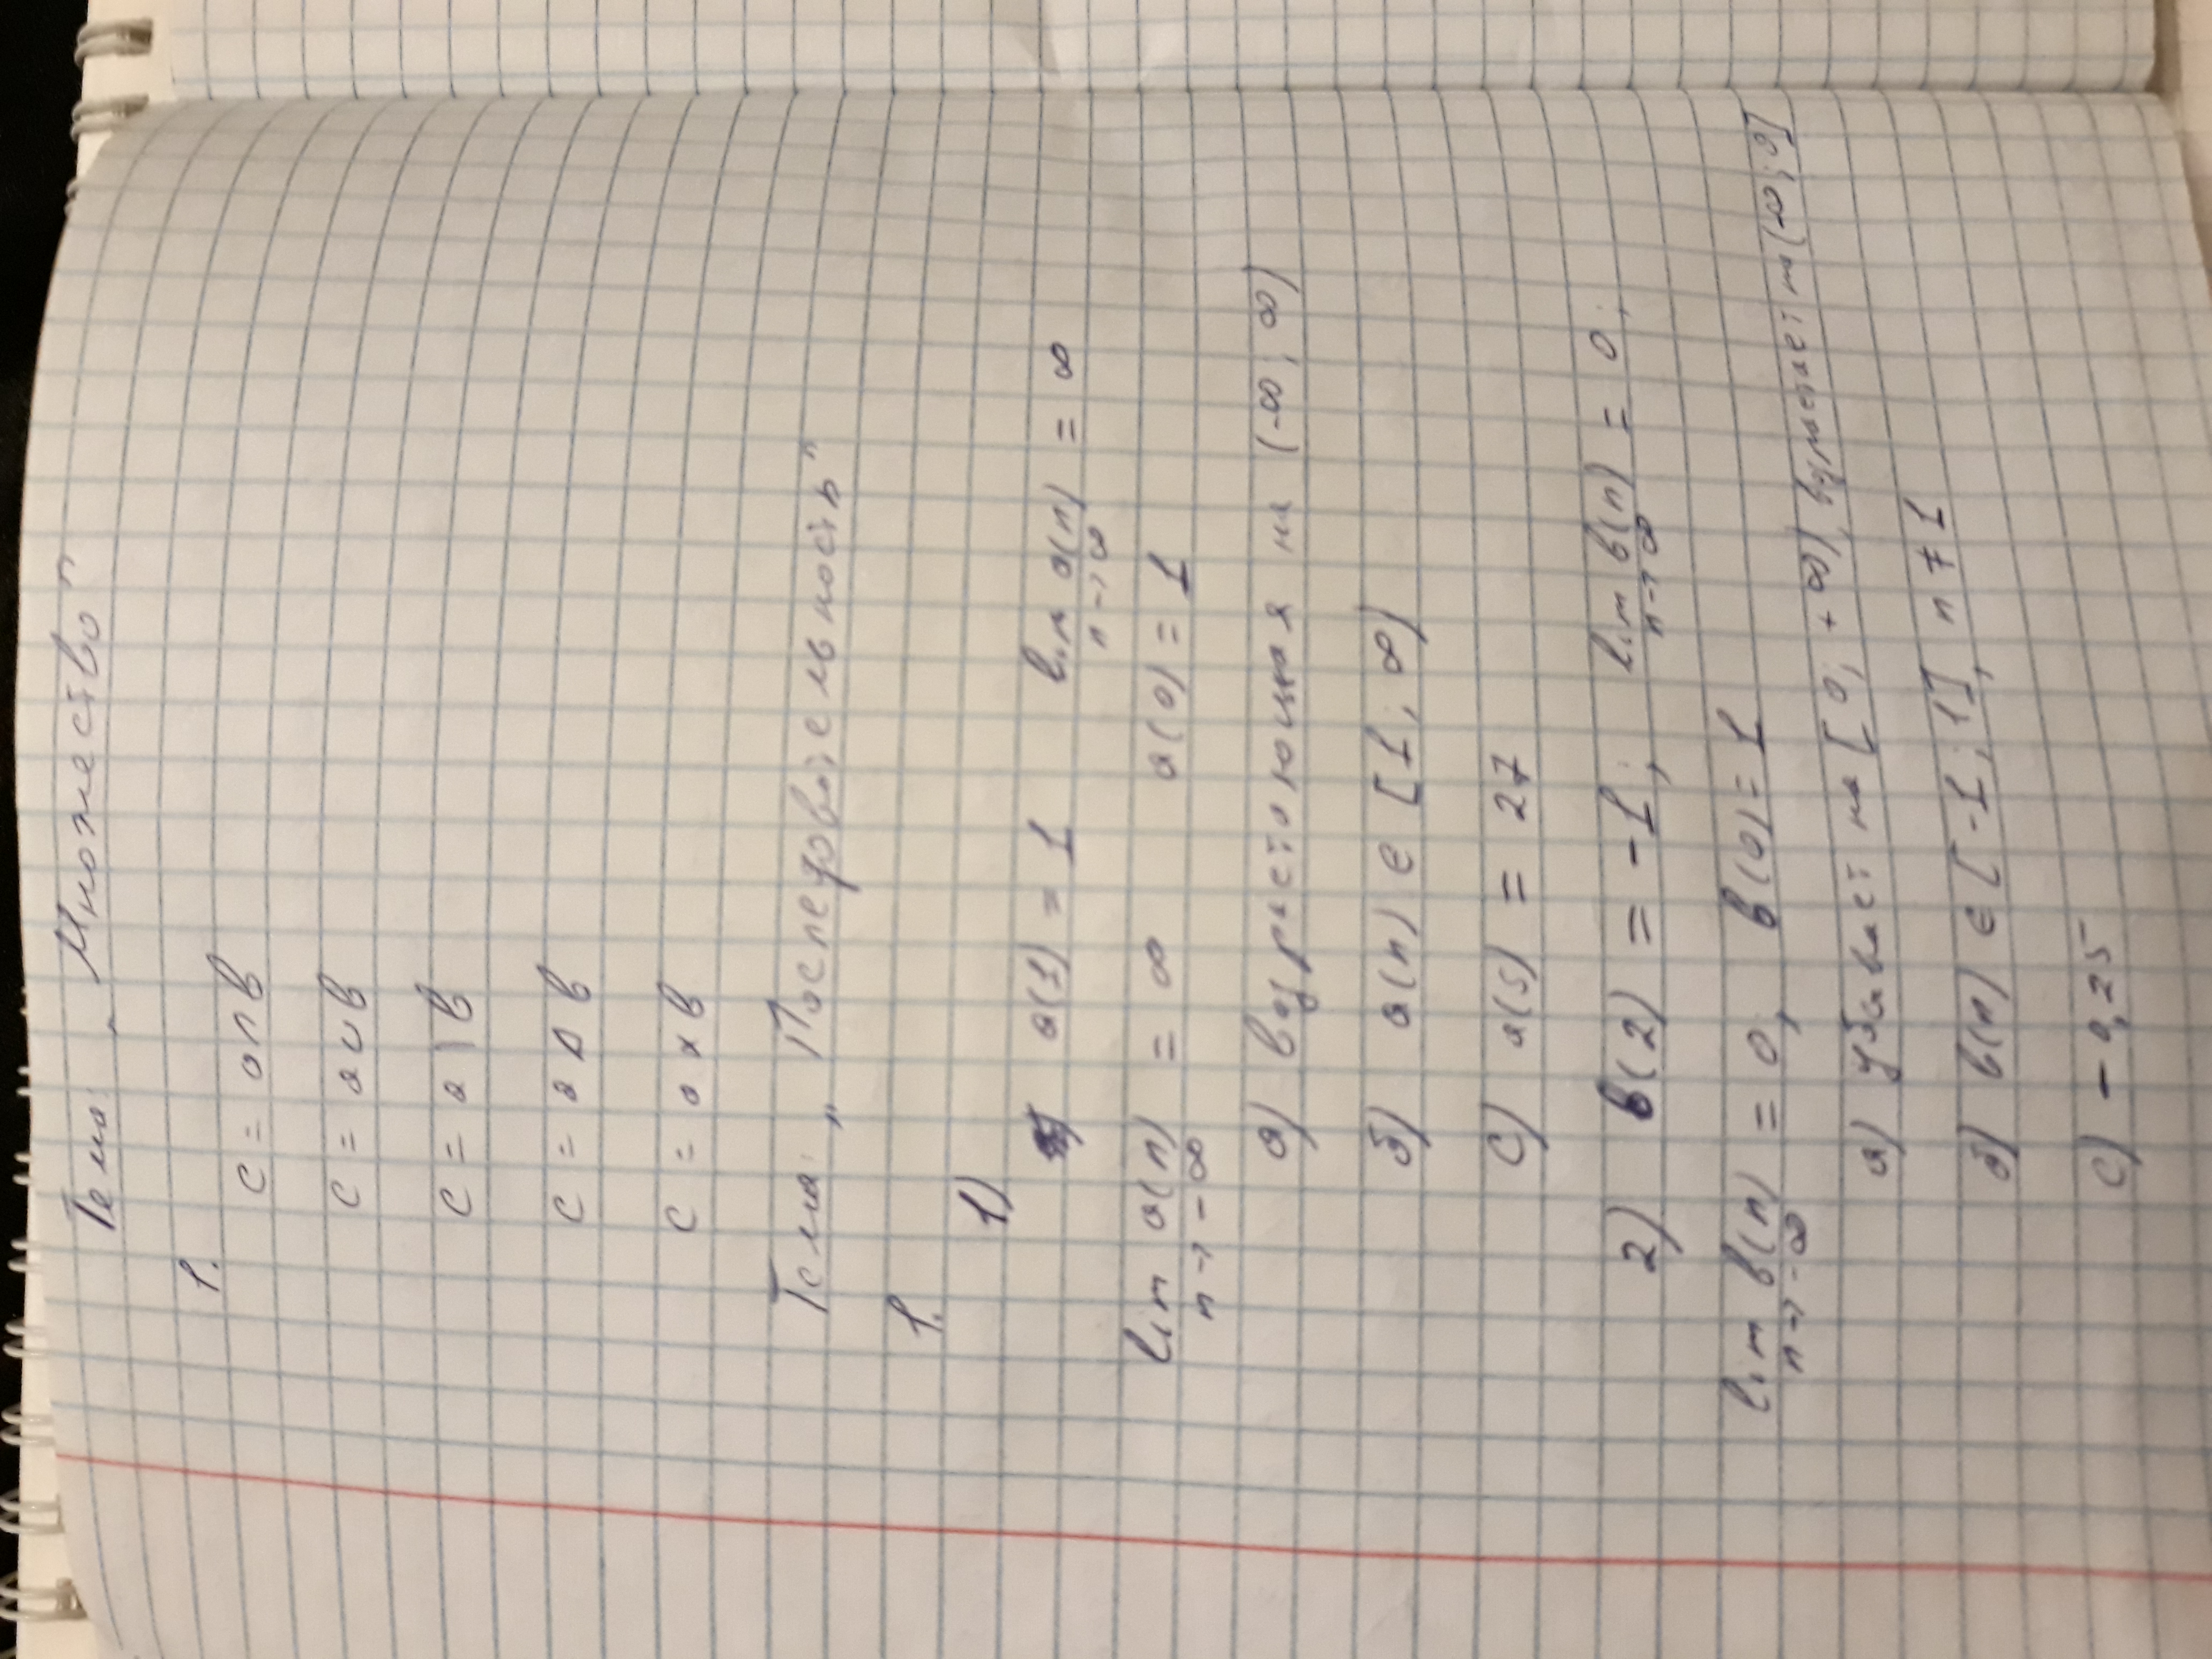 Тема: „Множество"
1.
c = a∩b
c = a∪b
c = a \ b
c = a Δ b
c = a x b
Тема: „Последовательность"
1.
1)
a(1) = 1 lim a(n) = ∞
n→∞
lim a(n) = ∞ a(0) = 1
n→-∞
а) возрастающая на (-∞; ∞)
б) a(n) ∈ [1; ∞)
с) a(5) = 27
2) b(2) = -1; lim b(n) = 0;
n→∞
lim b(n) = 0, b(0) = 1
n→-∞
а) убывает на [0; +∞), возрастает на
б) b(n) ∈ [-1; 1], n ≠ 1
с) -0,25